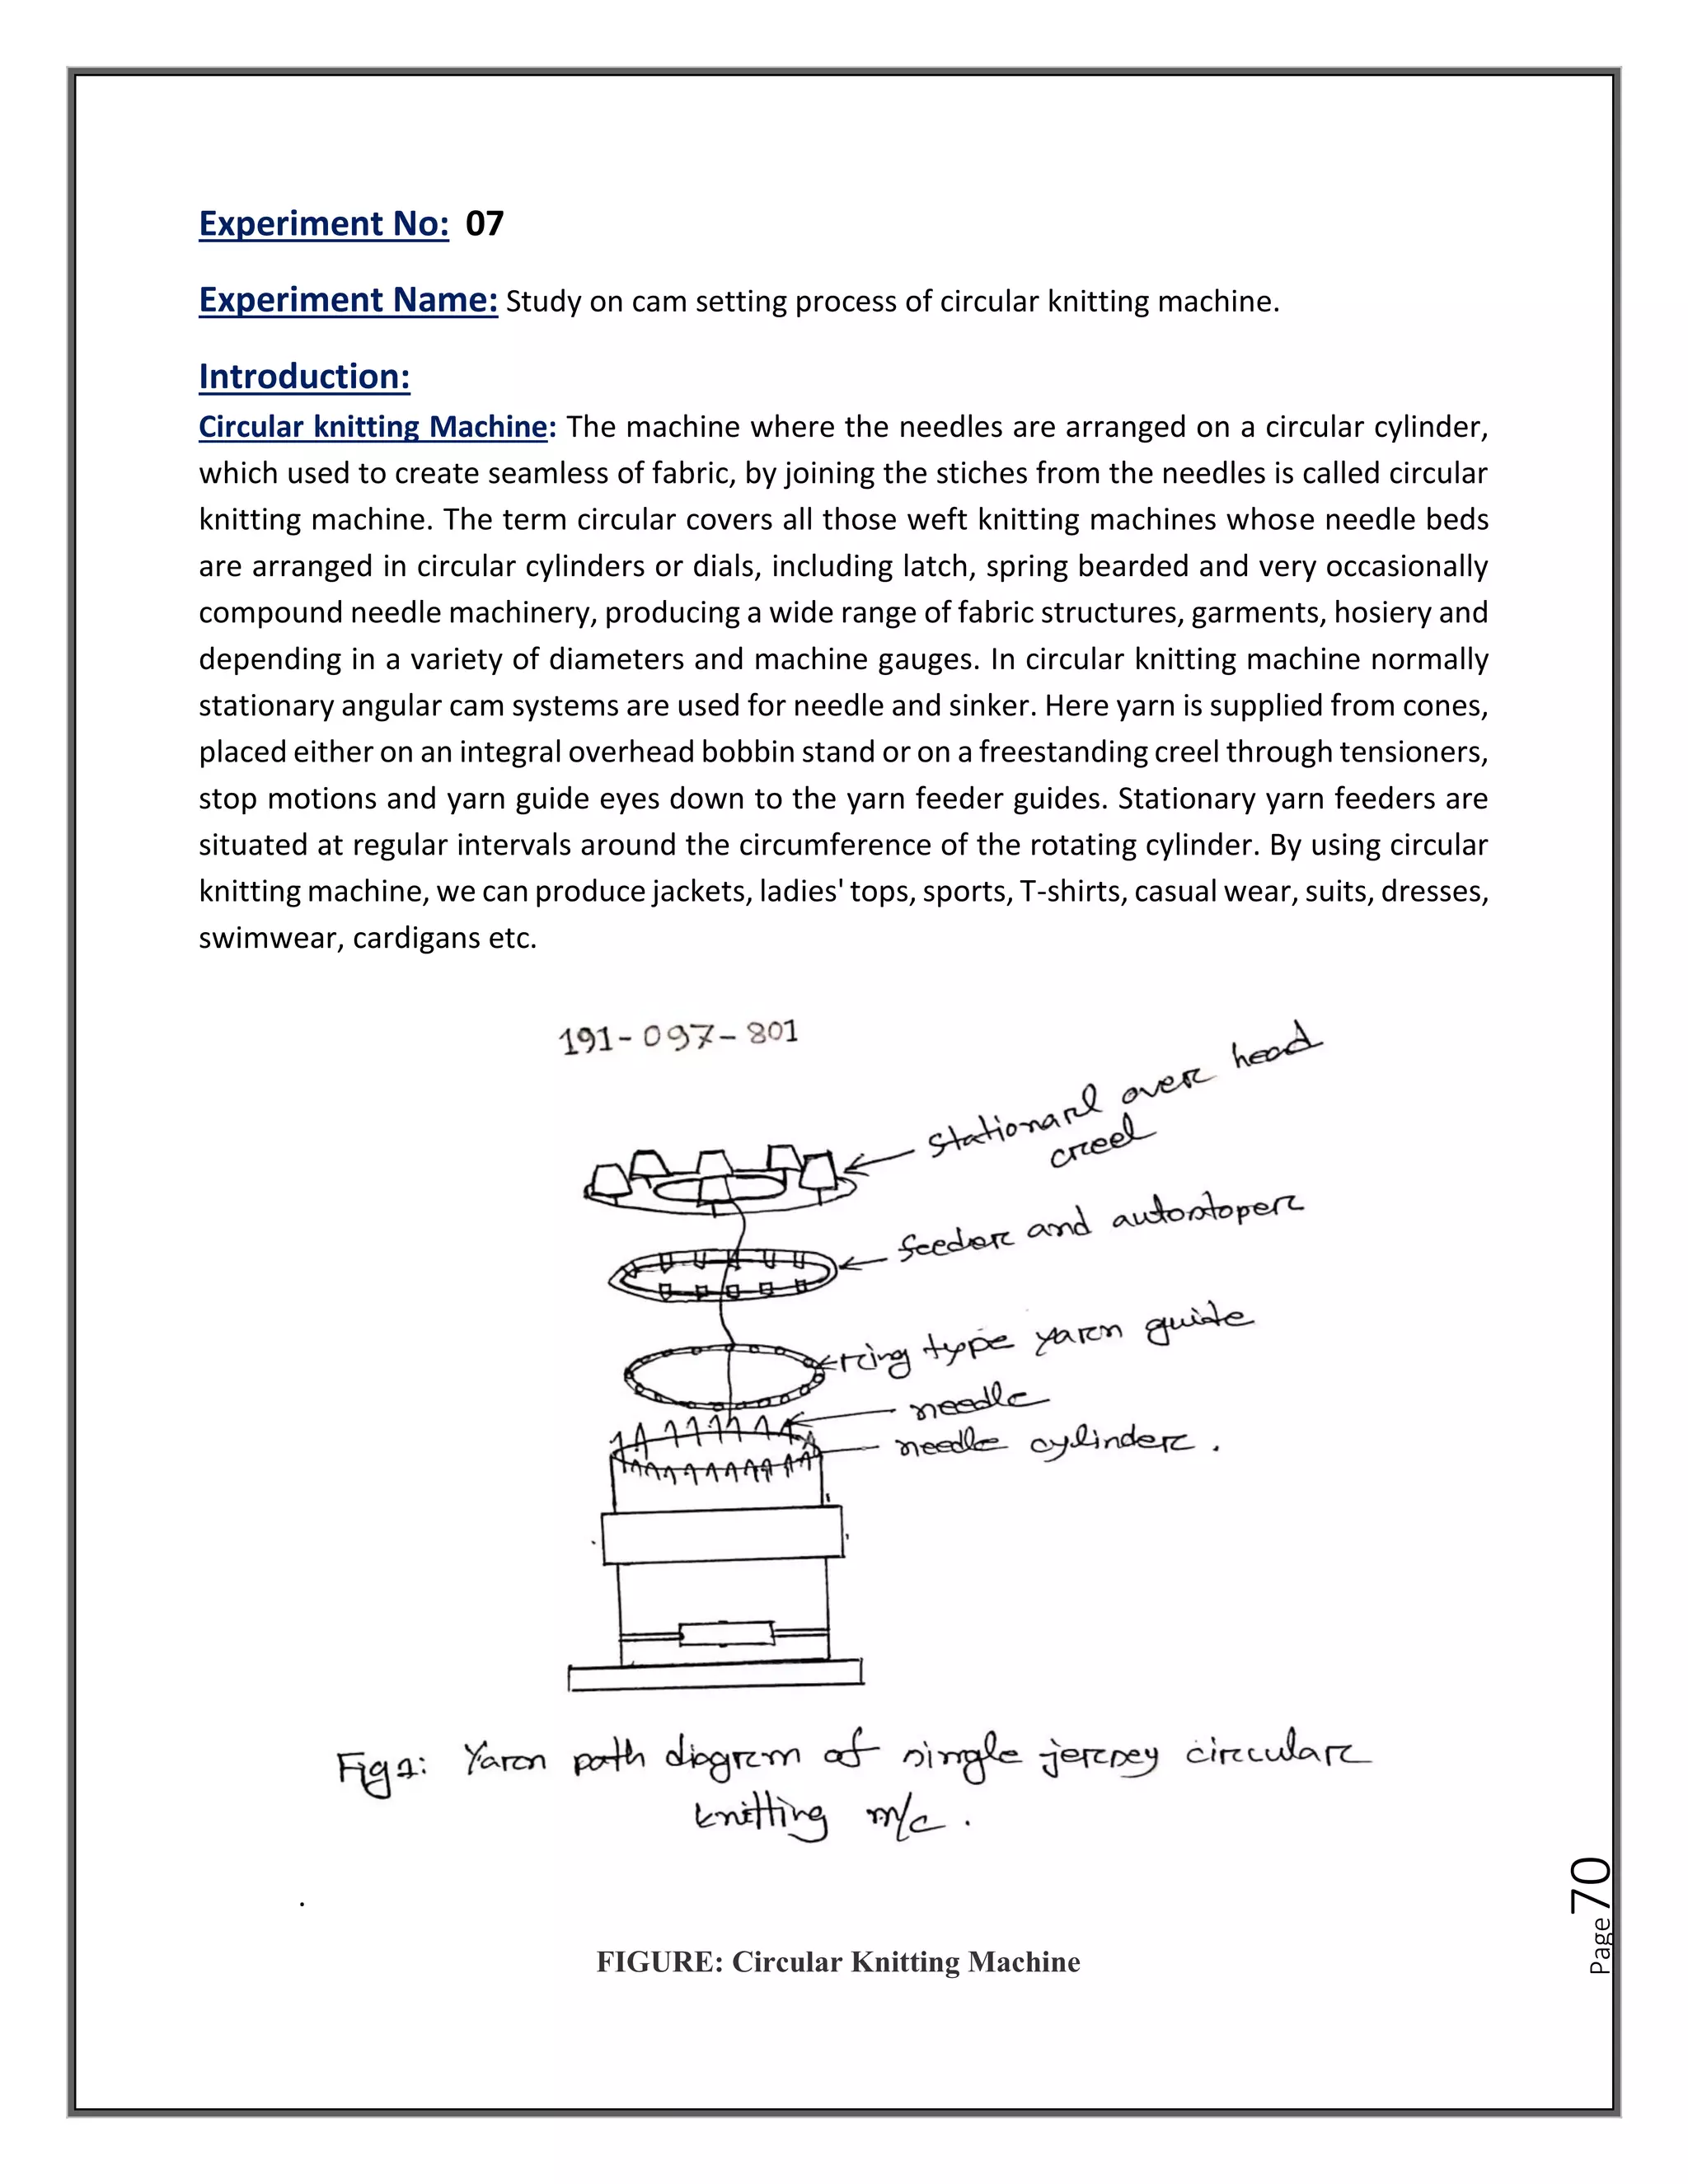 Experiment No: 07
Experiment Name: Study on cam setting process of circular knitting machine.
Introduction:
Circular knitting Machine: The machine where the needles are arranged on a circular cylinder,
which used to create seamless of fabric, by joining the stiches from the needles is called circular
knitting machine. The term circular covers all those weft knitting machines whose needle beds
are arranged in circular cylinders or dials, including latch, spring bearded and very occasionally
compound needle machinery, producing a wide range of fabric structures, garments, hosiery and
depending in a variety of diameters and machine gauges. In circular knitting machine normally
stationary angular cam systems are used for needle and sinker. Here yarn is supplied from cones,
placed either on an integral overhead bobbin stand or on a freestanding creel through tensioners,
stop motions and yarn guide eyes down to the yarn feeder guides. Stationary yarn feeders are
situated at regular intervals around the circumference of the rotating cylinder. By using circular
knitting machine, we can produce jackets, ladies' tops, sports, T-shirts, casual wear, suits, dresses,
swimwear, cardigans etc.
191-097-801
over head
creel
feeder and autostoper
ring type yarn guide
needle
needle cylinder.
Yarn path diagrm of single jersey circular
knitting m/c.
FIGURE: Circular Knitting Machine
Page 70